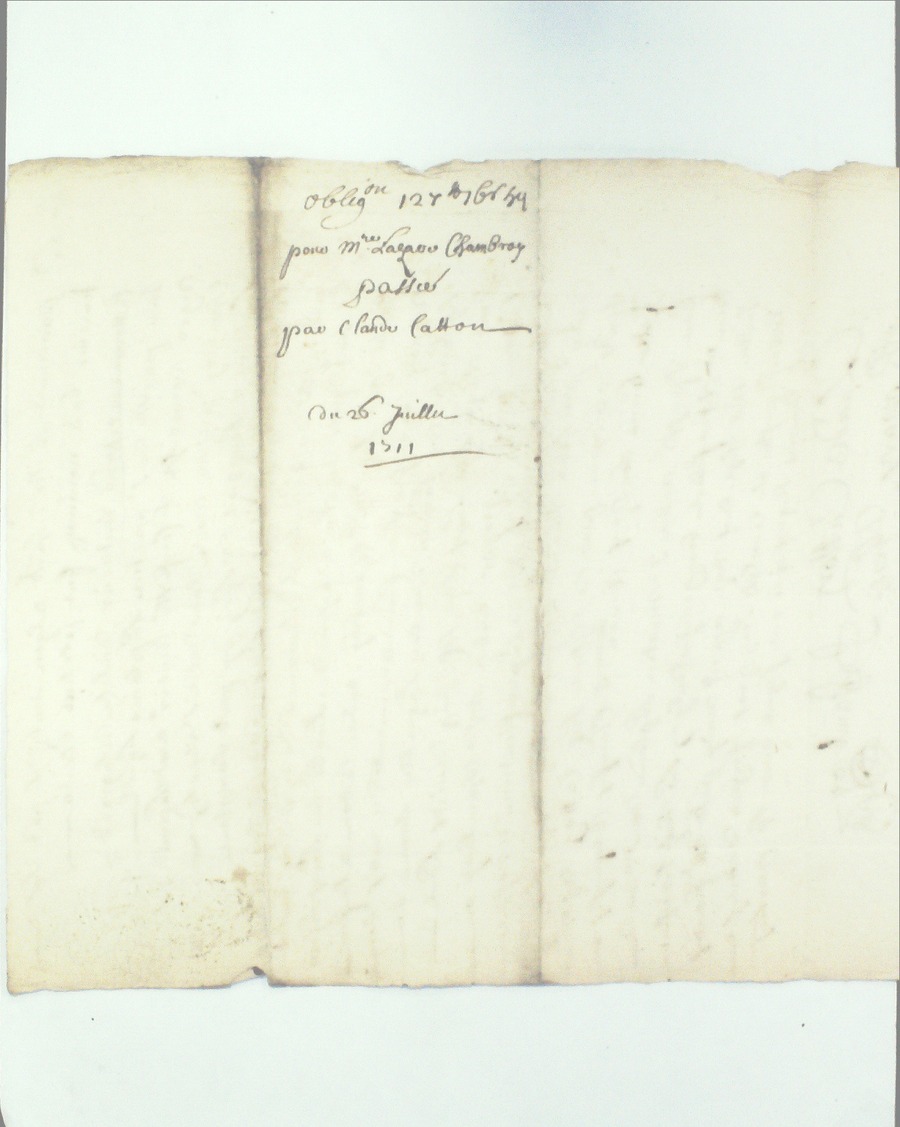 Oblig^on 127 ^tt 16 ^s 
pour M^re Lazare Chambroy
passée
par Claude Catton
du 26 Juillet
1711